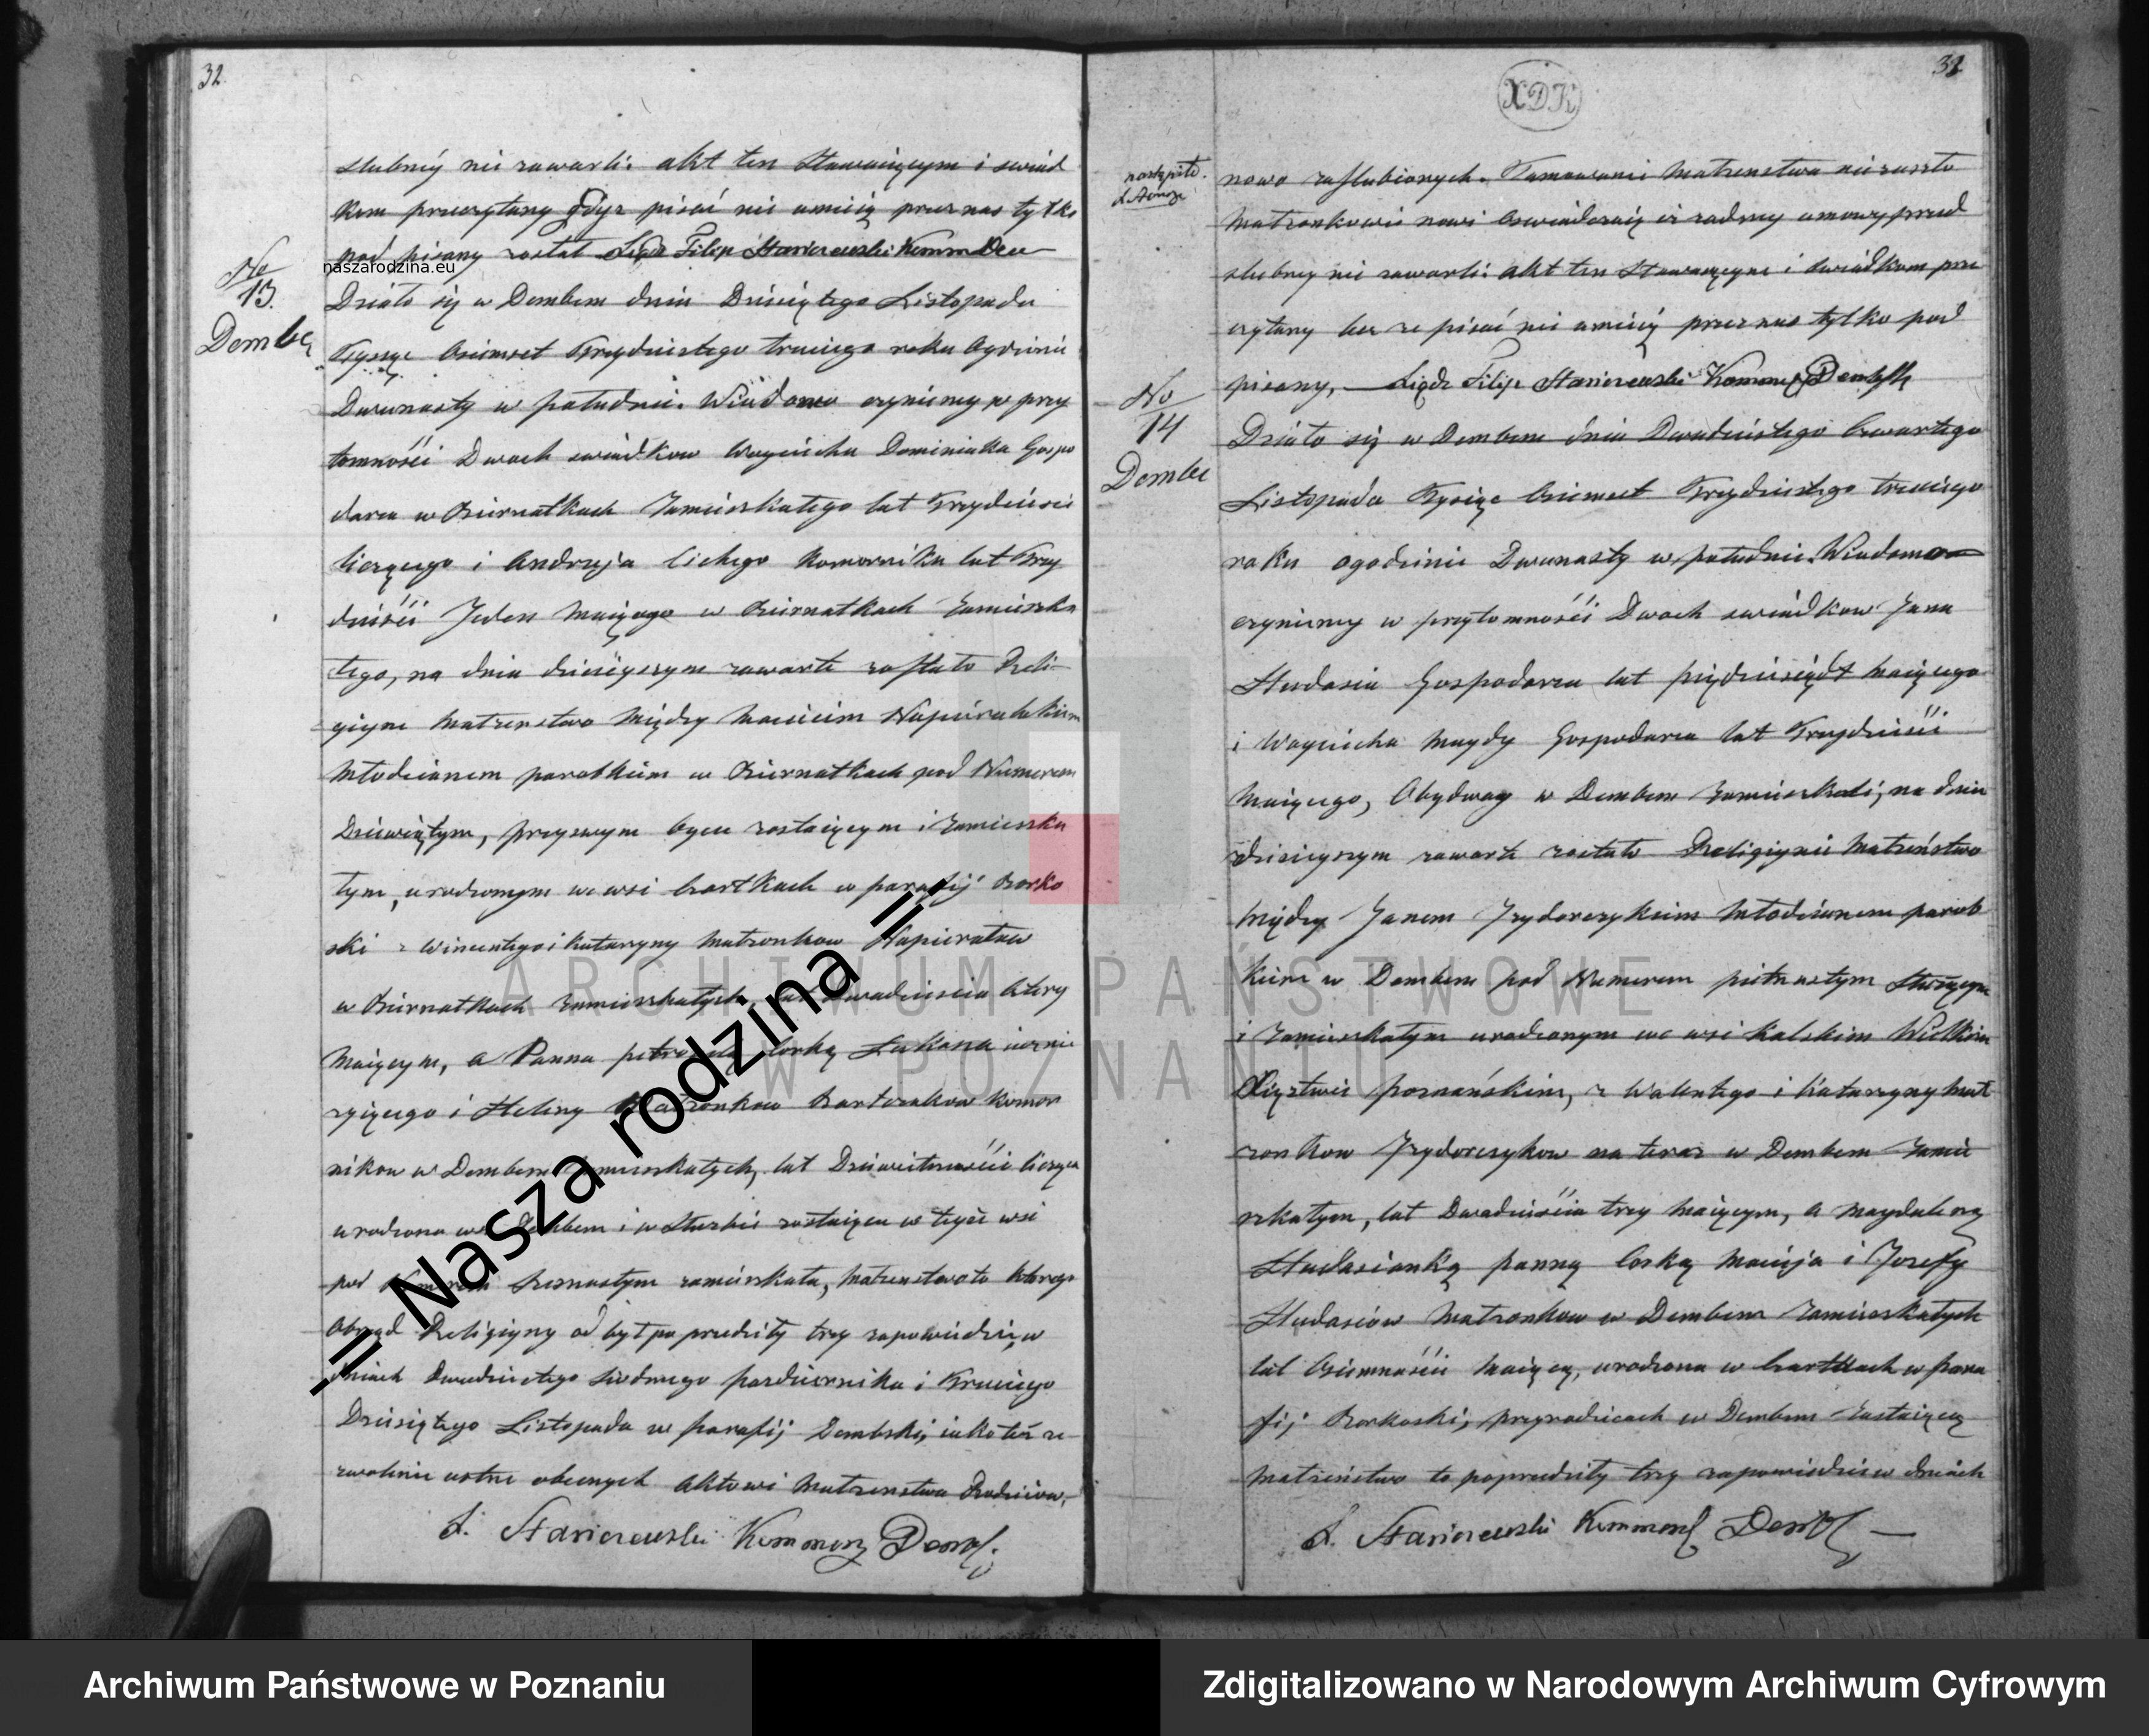 32.
slubnéy nie zawarli: akt ten Stawaiącym i swiad
kom przeczytany gdyż pisać nie umieią przez nas tylko
pod pisany został Xiądz Filip Stanierewski Kommen
naszarodzina.eu
No
13.
Dembe
Działo się w Dembem dnia Dziesiątego Listopada
Tysiąc Osimset Trzydziestego trzeciego roku Ogodzinie
Dwunasty w południe. Wiadomo czyniemy w przy
tomności Dwoch swiadkow Woyciecha Dominiaka Gospo
darza w Biernatkach Zamieszkałego lat Trzydzieści
liczącego i Andrzeja Cichego Komornika lat Trzy
dzieści Jeden maiącego w Biernatkach Zamieszka
łego, na dniu dzisieyszym zawarte zostało Reli-
giyne Matzenstwo między Macieiem Napieralskim
Młodzianem parobkiem w Biernatkach pod Numerem
Dziewiątym, przy swym oycu zostaiącym i Zamieszka
łym, urodzonym we wsi Czartkach w parafij Borko
ski z Wincentego i Kataryny Matzonkow Napierałow
w Biernatkach zamieszkałych, lat Dwadzieścia Cztery
Maiącym, a Panna Corką Łukasza ieszcze
zyiącego i Heleny Matzonkow Bartczakow Komor
nikow w Dembem zamieszkałych, lat Dziewietnaście licząca
urodzona w Dembem i w Służbie zostaiąca w teyże wsi
pod Numerem Szesnastym zamieszkała, Matzenstwo to którego
Obrząd Religiyny odbył poprzedziły trzy zapowiedzie, w
dniach Dwudziestego Siodmego pazdziernika i Trzeciego
Dziesiątego Listopada w parafij Dembski, iako też ze
zwolenie ustne obecnych Aktowi Matzenstwa Rodziców,
X. Stanierewski Kommen Demb.
32
XDK
następste.
nowo zaslubionych. Tamowanie Matzenstwa nie zaszło
Matzonkowie nowi Oswiadczaią iż żadney umowy przed
slubney nie zawarli: Akt ten Stawaiącym i swiadkom prze
czytany lecz że pisać nie umieią przez nas tylko pod
pisany, Xiądz Filip Stanierewski Kommen Dembsk
No
14
Dembe
Działo się w Dembem dnia Dwudziestego Czwartego
Listopada Tysiąc Osiemset Trzydziestego trzeciego
roku ogodzinie Dwunasty w południe. Wiadomo
czyniemy w przytomności Dwoch swiadkow Jana
Studasia Gospodarza lat pięćdziesiąt maiącego
i Woyciecha Maydy Gospodarza lat Trzydzieści
Maiącego, Obydway w Dembem Zamieszkali, na dniu
dzisieyszym zawarte zostało Religiyne Matzeństwo
Między Janem Izydorczykiem Młodzianem parob
kiem w Dembem pod Numerem piętnastym Służącym
i Zamieszkałym urodzonym we wsi Kalskim Wielkim
Xięztwie poznańskim, z Walentego i Kataryny Mat
zonkow Izydorczykow na teraz w Dembem Zamie
szkałym, lat Dwadzieścia trzy maiącym, a Magdaleną
Studasianką panną Corką Macieja i Jozefy
Studasiów Matzonkow w Dembem Zamieszkałych
lat Osiemnaście Maiącą, urodzona w Czartkach w para
fij Borkoski, przyrodzicach w Dembem Zostaiącą
Matzeństwo to poprzedziły trzy zapowiedzie w dniach
X. Stanierewski Kommen Demb
= Nasza rodzina =
ARCHIWUM PAŃSTWOWE
W POZNANIU
Archiwum Państwowe w Poznaniu
Zdigitalizowano w Narodowym Archiwum Cyfrowym